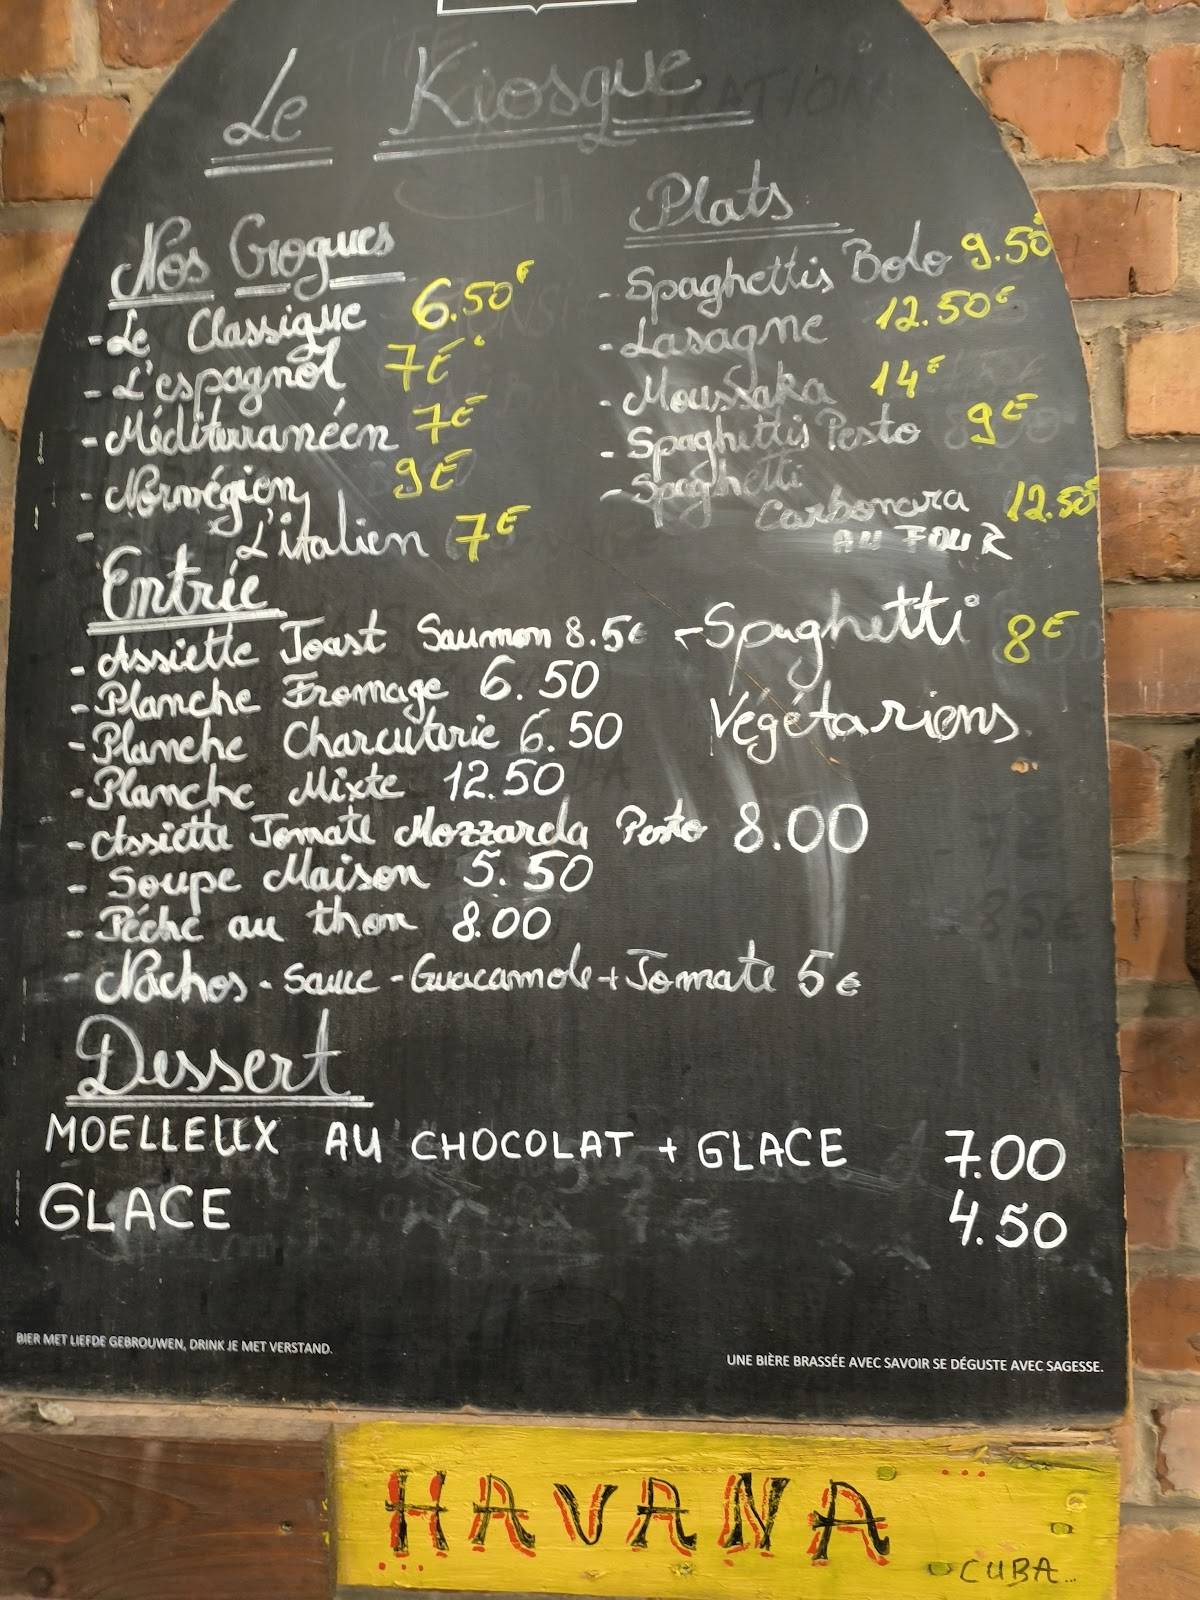 Le Kiosque
Nos Croques
- Le Classique 6.50€
- L'espagnol 7€
- Méditerranéen 7€
- Norvégien 9€
- L'italien 7€
Plats
- Spaghettis Bolo 9.50€
- Lasagne 12.50€
- Moussaka 14€
- Spaghettis Pesto 9€
- Spaghetti
Carbonara 12.50€
AU FOUR
- Spaghetti 8€
Végétariens
Entrée
- Assiette Toast Saumon 8.5€
- Planche Fromage 6.50
- Planche Charcuterie 6.50
- Planche Mixte 12.50
- Assiette Tomate Mozzarela Pesto 8.00
- Soupe Maison 5.50
- Pêche au thon 8.00
- Nachos - Sauce - Guacamole + Tomate 5€
Dessert
MOELLEUX AU CHOCOLAT + GLACE 7.00
GLACE 4.50
BIER MET LIEFDE GEBROUWEN, DRINK JE MET VERSTAND.
UNE BIÈRE BRASSÉE AVEC SAVOIR SE DÉGUSTE AVEC SAGESSE.
HAVANA
CUBA...